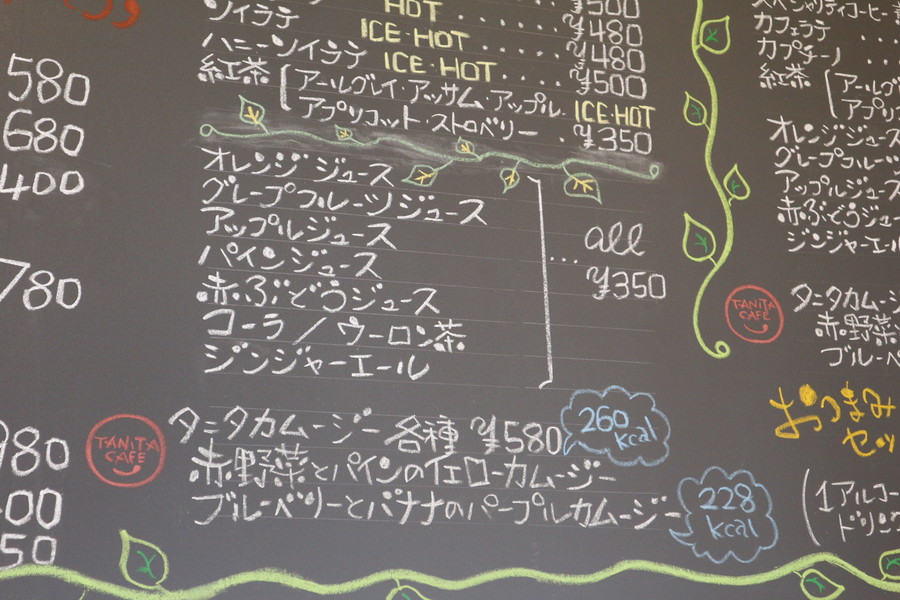 580
680
400
780
980
00
50
HOT ..... ¥500
ソイラテ ICE・HOT ..... ¥480
¥480
ハニーソイラテ ICE・HOT .... ¥500
紅茶 アールグレイ・アッサム・アップル ICE・HOT
アプリコット・ストロベリー ¥350
オレンジジュース
グレープフルーツジュース
アップルジュース
パインジュース
赤ぶどうジュース
コーラ/ウーロン茶
ジンジャーエール
... all
¥350
TANITA CAFE
タニタカムージー各種 ¥580
赤野菜とパインのイエローカムージー
260 kcal
ブルーベリーとバナナのパープルカムージー
228 kcal
スペシャリティコーヒー
カフェラテ
カプチーノ ...
紅茶 アールグレ
アプリコ
オレンジジュース
グレープフルーツ
アップルジュース
赤ぶどうジュー
ジンジャーエール
TANITA CAFE
タニタカムージ
赤野菜
ブルーベ
おつまみ
セッ
(1アルコー
ドリン